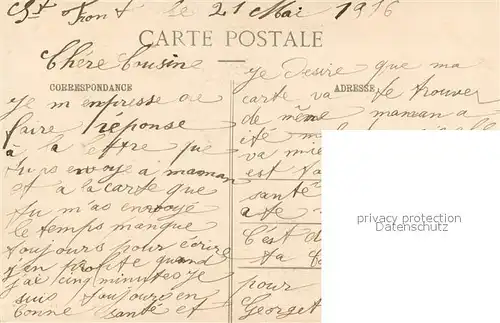 St Front le 21 Mai 1916
CARTE POSTALE
Chère Cousine
CORRESPONDANCE
Je m empresse de
faire réponse
à la lettre que
tu as envoyé a maman
et a la carte que
tu m'as envoyé
le temps manque
toujours pour écrire
j'en profite quand
j'ai cinq minutes je
suis toujours en
bonne santé et
je desire que ma
ADRESSE
carte va te trouver
de même maman a
été
va mie
est ta
santé
a te
C'est d
ta
pour
Georget
privacy protection
Datenschutz